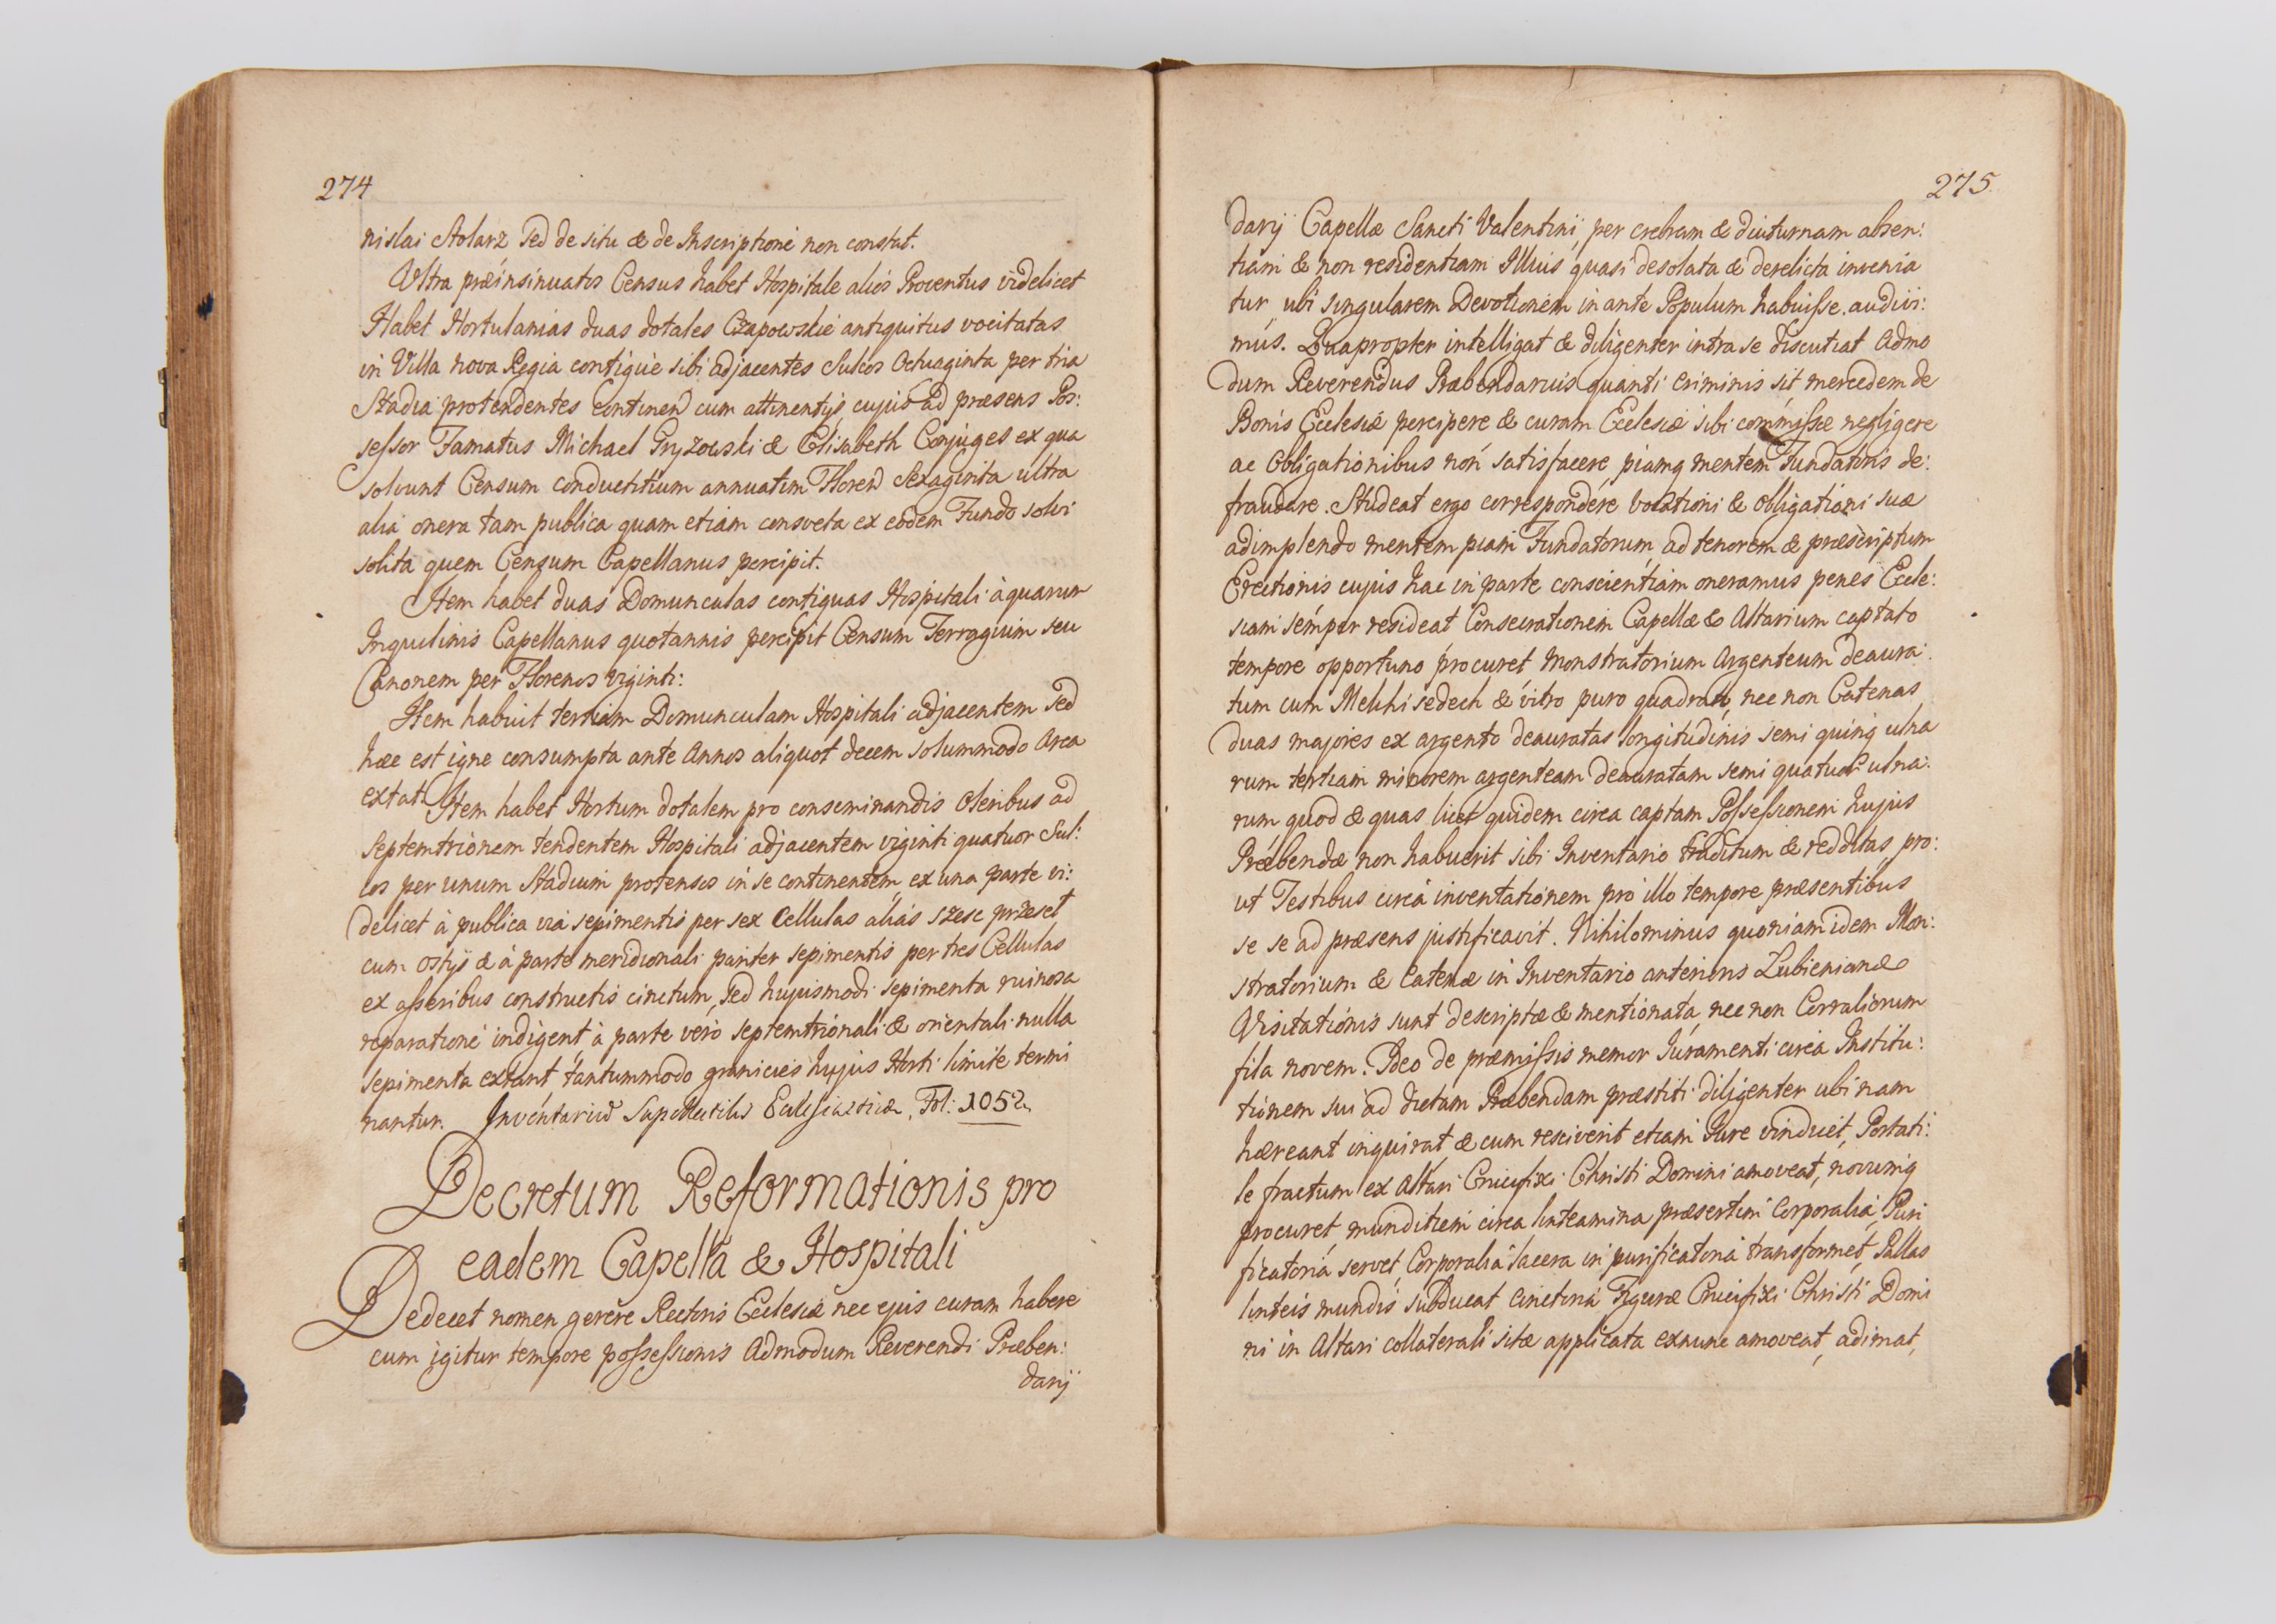 274
nislai Stolarz sed de situ & de Inscriptione non constat.
Ultra præinsinuatos Census habet Hospitale alios Proventus videlicet
Habet Hortulanias duas dotales Czapowskie antiquitus vocitatas
in Villa nova Regia contigue sibi adjacentes Sulcos Octuaginta per tria
Stadia protendentes continen cum attinentijs cujus ad præsens Pos:
sessor Famatus Michael Gryzowski & Elisabeth Conjuges ex qua
solvunt Censum conductitium annuatim Floren Sexaginta ultra
alia onera tam publica quam etiam consveta ex eodem Fundo solvi
solita quem Censum Capellanus percipit.
Item habet duas Domunculas contiguas Hospitali à quarum
Inquilinis Capellanus quotannis percipit Censum Terragium seu
Canonem per Florenos viginti:
Item habuit tertiam Domunculam Hospitali adjacentem sed
hæc est igne consumpta ante Annos aliquot decem solummodo Area
extat. Item habet Hortum dotalem pro conseminandis Oleribus ad
septemtrionem tendentem Hospitali adjacentem viginti quatuor Sul:
cos per unum Stadium protensos in se continentem, ex una parte vi:
delicet à publica via sepimentis per sex Cellulas aliás szesc przeset
cum Ostijs & à parte meridionali pariter sepimentis per tres Cellulas
ex asseribus constructis cinctum, sed hujusmodi sepimenta ruinosa
reparatione indigent à parte vero septemtrionali & orientali nulla
sepimenta extant tantummodo granicies hujus Horti limite termi
nantur. Inventariu Supellectilis Ecclesiasticæ, Fol: 1052.
Decretum Reformationis pro
eadem Capella & Hospitali
Dedecet nomen gerere Rectoris Ecclesiæ nec ejus curam habere
cum igitur tempore possessionis Admodum Reverendi Præben:
darij
275.
darij Capellæ Sancti Valentini, per crebram & diuturnam absen:
tiam & non residentiam Illius quasi desolata & derelicta invenia
tur, ubi singularem Devotionem in ante Populum habuisse audivi:
mus. Quapropter intelligat & diligenter intra se discutiat Admo
dum Reverendus Præbendarius quanti criminis sit, mercedem de
Bonis Ecclesiæ percipere & curam Ecclesiæ sibi commissæ negligere
ac Obligationibus non satisfacere piamq mentem Fundatoris de:
fraudare. Studeat ergo correspondere vocationi & obligationi suæ
adimplendo mentem piam Fundatorum, ad tenorem & præscriptum
Erectionis cujus hac in parte conscientiam oneramus penes Eccle:
siam semper resideat Consecrationem Capellæ & Altarium captato
tempore opportuno procuret Monstratorium Argenteum deaura:
tum cum Melchisedech & vitro puro quadrato, nec non Catenas
duas majores ex argento deauratas longitudinis semi quinq ulna
rum tertiam minorem argenteam deauratam semi quatuor ulna:
rum quod & quas licet quidem circa captam Possessionem hujus
Præbendæ non habuerit sibi Inventario traditum & redditas, pro:
ut Testibus circa inventationem pro illo tempore præsentibus
se se ad præsens justificavit. Nihilominus quoniam idem Mon:
stratorium & Catenæ in Inventario anterioris Lubienianæ
Visitationis sunt descriptæ & mentionata, nec non Corraliorum
fila novem. Ideo de præmissis memor Juramenti circa Institu:
tionem sui ad dictam Præbendam præstiti diligenter ubi nam
hæreant inquirat & cum resciverit etiam Jure vindicet, Portati:
le fractum ex Altari Crucifixi Christi Domini amoveat, novumq
procuret, munditiem circa linteamina præsertim Corporalia, Puri
ficatoria servet, Corporalia lacera in purificatoria transformet, Pallas
linteis mundis subducat cinctoria Figuræ Crucifixi Christi Domi
ni in Altari collaterali sitæ applicata exnunc amoveat, adimat,